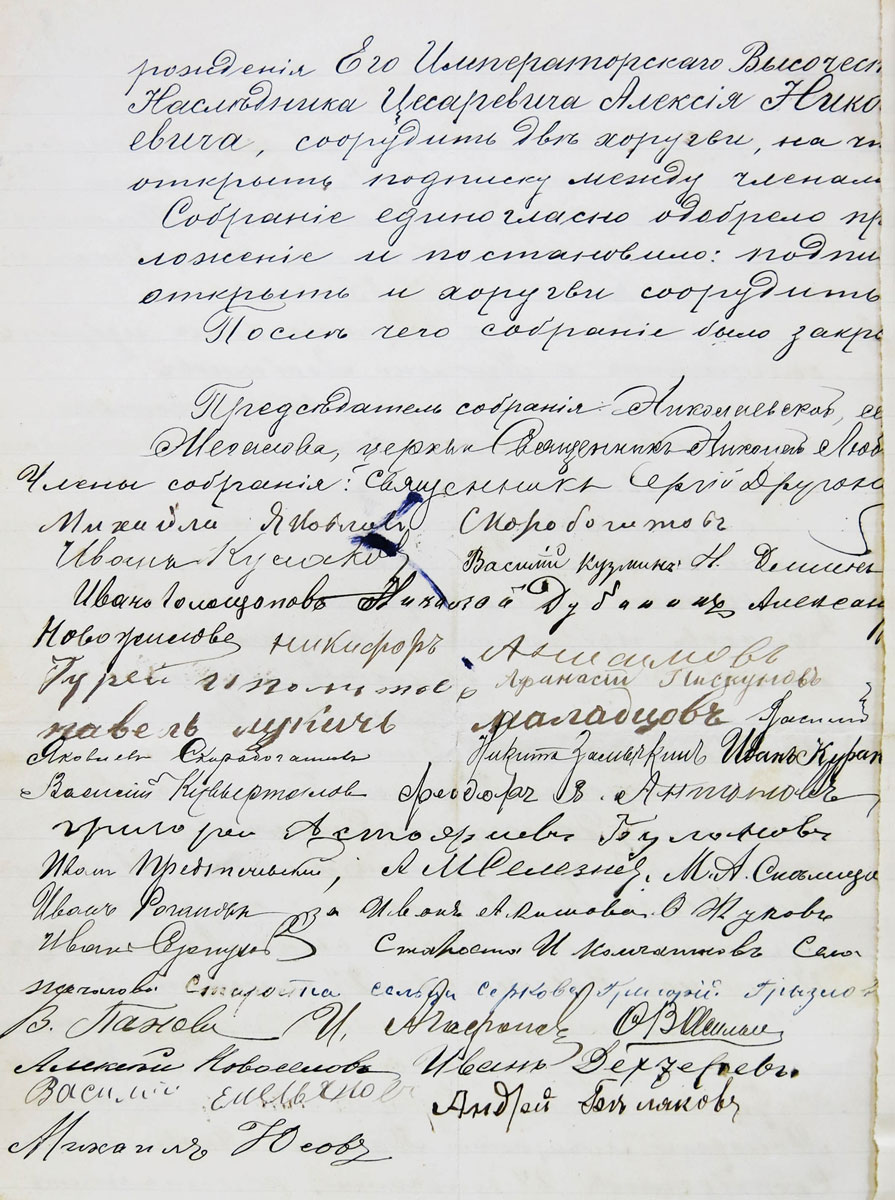 рожденія Его Императорскаго Высочест
Наслѣдника Цесаревича Алексія Нико
евича, соорудить двѣ хоругви, на ч
открыть подписку между членам
Собраніе единогласно одобрело пр
ложеніе и постановило: подпи
открыть и хоругви соорудить
Послѣ чего собраніе было закры
Предсѣдатель собранія: Николаевской, се
церкви Священникъ Николай Люб
Члены собранія: Священникъ Сергій Другов
Михайла Яковлевъ Скоробогатовъ
Иванъ Кусаковъ Василій Кузминъ Н. Деминъ
Иванъ Голощоповъ Николай Дубакинъ Алексан
Новожилова никифоръ Анисимовъ
Гурей Аѳанасій Пискуновъ
павелъ лукичъ маладцовъ Василій
Яковлевъ Скоробогатовъ Никита Замычкинъ Иванъ Куран
Василій Кувырталовъ феодоръ В. Антоновъ
григорей Булановъ
Иван Предтеченскій; А М Селезнёв, М. А. Смы
Иванъ Рогачь за Ивана Жуковъ
Иванъ Староста И Колчановъ Села
староста сельца серкова Григорій Грызлов
В. Панова И. Агафоновъ
Алексій Новоселовъ Иванъ
Василий Емельяновъ Андрей Беляковъ
Михаилъ Юсовъ